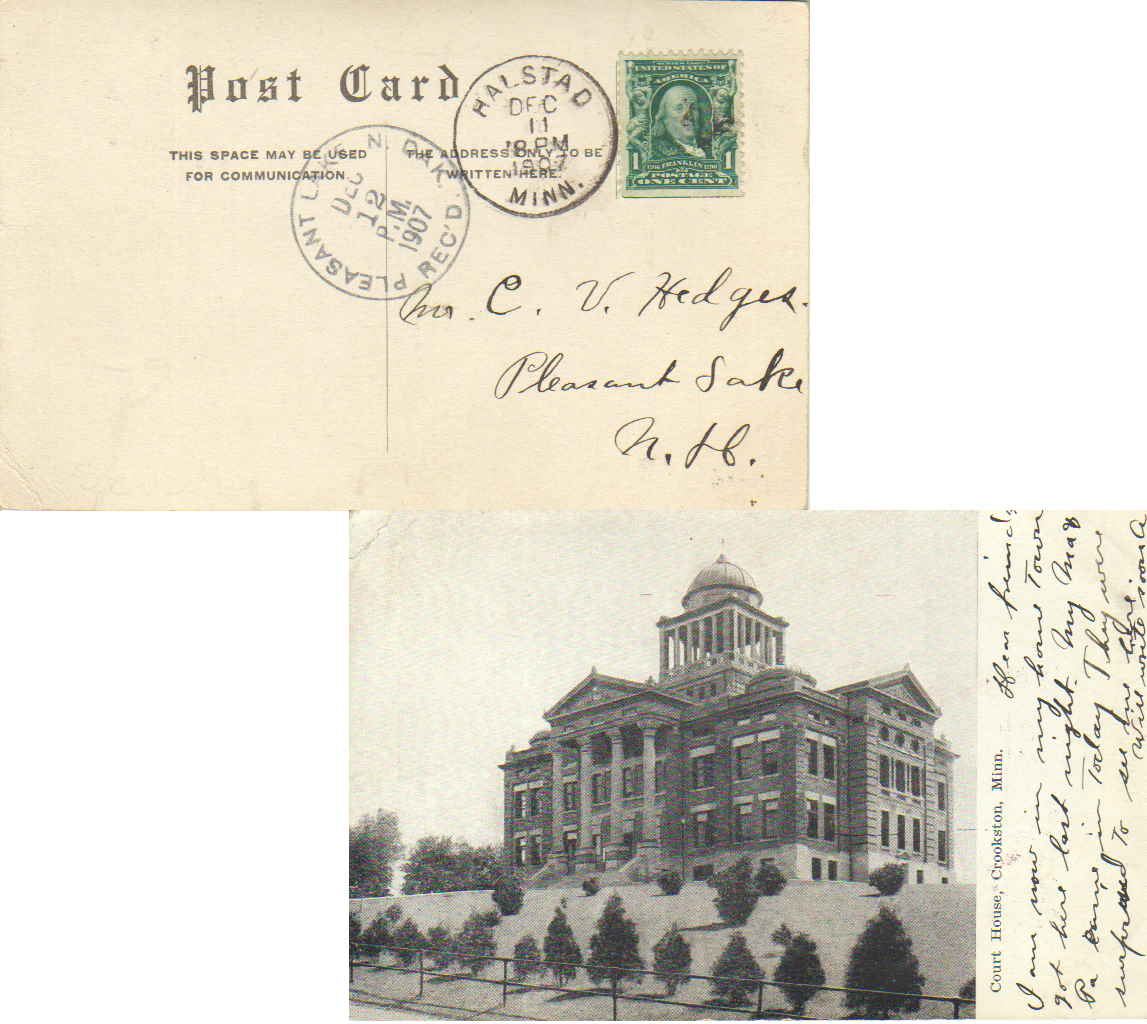 Post Card
THIS SPACE MAY BE USED
FOR COMMUNICATION
THE ADDRESS ONLY TO BE
WRITTEN HERE.
HALSTAD
DEC
11
8 PM
1907
MINN.
UNITED STATES OF
AMERICA
1 FRANKLIN 1
POSTAGE
ONE CENT
PLEASANT LAKE N. DAK.
DEC
12
P.M.
1907
REC'D
Mr. C. V. Hedges.
Pleasant Lake
N. D.
Court House, Crookston, Minn.
Dear friends
I am now in my home Town
got here last night. My Ma &
Pa came in Today They were
surprised To see me here
Will write soon